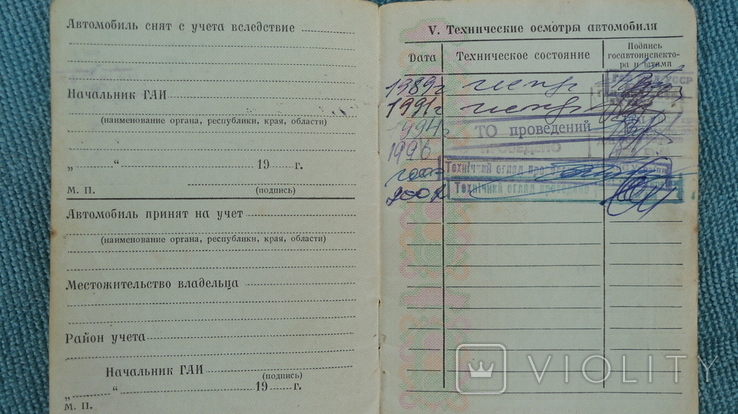 Автомобиль снят с учета вследствие
Начальник ГАИ
(наименование органа, республики, края, области)
„ “ 19 г.
М. П. (подпись)
Автомобиль принят на учет
(наименование органа, республики, края, области)
Местожительство владельца
Район учета
Начальник ГАИ
(подпись)
„ “ 19 г.
М. П.
V. Технические осмотры автомобиля
Дата Техническое состояние Подпись госавтоинспектора и штамп
1989г испр
1991г испр
1994г ТО проведений
1996
Технічний огляд
2002 Технічний огляд
VIOLITY